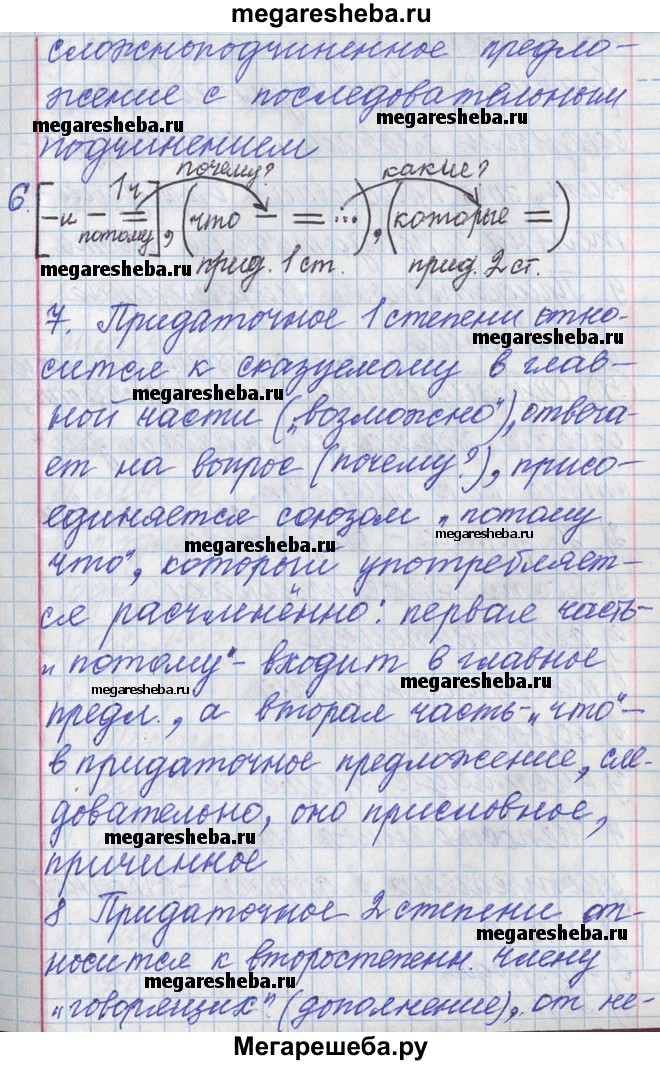 megaresheba.ru
сложноподчиненное предло-
жение с последовательным
megaresheba.ru
megaresheba.ru
подчинением
почему? какие?
6. [- и - = 1ч потому], (что - = ...), (которые =)
megaresheba.ru
прид. 1 ст. прид. 2 ст.
7. Придаточное 1 степени отно-
megaresheba.ru
сится к сказуемому в глав-
megaresheba.ru
ной части („возможно"), отвеча-
ет на вопрос (почему?), присо-
единяется союзом „потому
megaresheba.ru
megaresheba.ru
что", который употребляет-
ся расчленённо: первая часть-
„потому"- входит в главное
megaresheba.ru
megaresheba.ru
предл., а вторая часть-„что"-
в придаточное предложение, сле-
довательно, оно присловное,
megaresheba.ru
причинное
8 Придаточное 2 степени от-
megaresheba.ru
носится к второстепенн. члену
„говорящих" (дополнение), от не-
Мегарешеба.ру